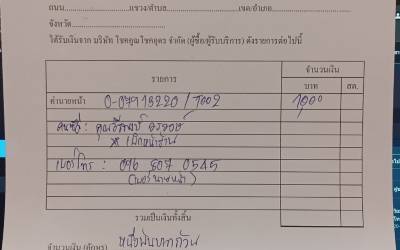 ถนน แขวง/ตำบล เขต/อำเภอ
จังหวัด
ได้รับเงินจาก บริษัท โชคคูณโชคอุดร จำกัด (ผู้ซื้อ/ผู้รับบริการ) ดังรายการต่อไปนี้
รายการ จำนวนเงิน
บาท สต.
ค่านายหน้า 0-07918220/T002 1,000
คุณ
เบอร์โทร : 096 807 0545
(เบอร์นายหน้า)
รวมเป็นเงินทั้งสิ้น
จำนวนเงิน (อักษร) หนึ่งพันบาทถ้วน